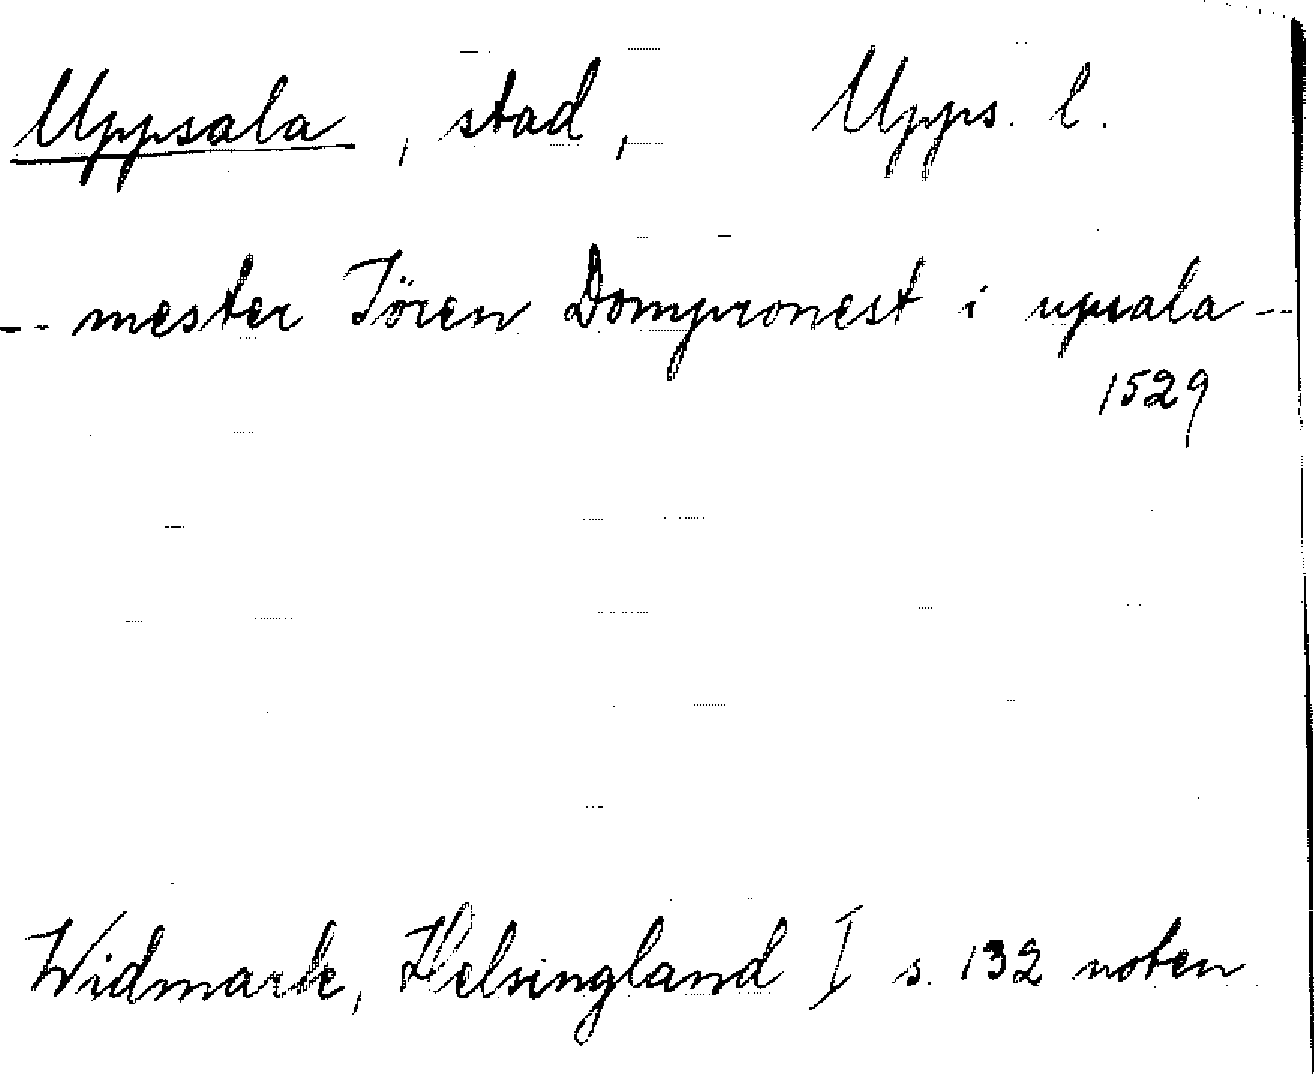 Uppsala, stad, Upps. l.
-- mester Jören Domprouest i upsala --
1529
Widmark, Helsingland I s. 132 noten